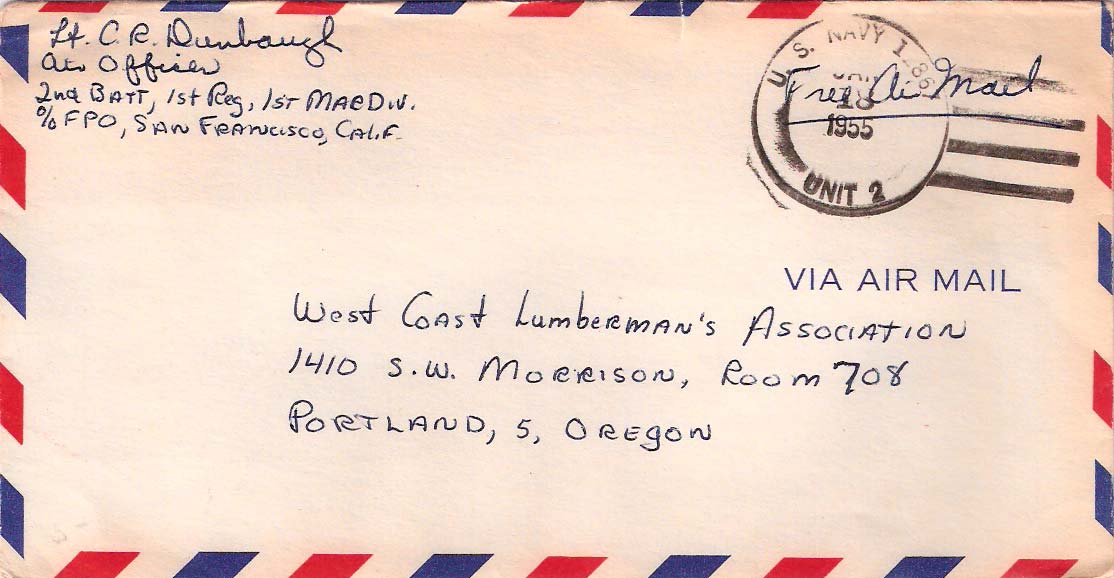 Lt. C. R. Dunbaugh
Air Officer
2nd BATT, 1st Reg, 1st MAR DIV.
% FPO, SAN FRANCISCO, CALIF.
U. S. NAVY
JAN
18
1955
UNIT 2
Free Air Mail
VIA AIR MAIL
West Coast Lumberman's Association
1410 S.W. Morrison, Room 708
Portland, 5, Oregon